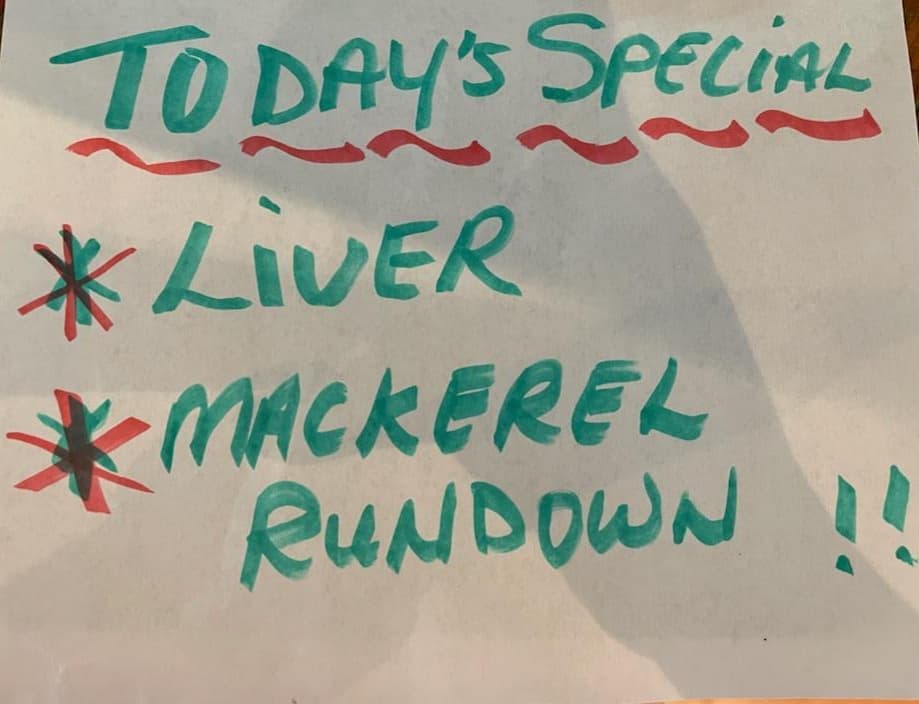 TODAY'S SPECiAL
* LiVER
* MACKEREL
RUNDOWN !!